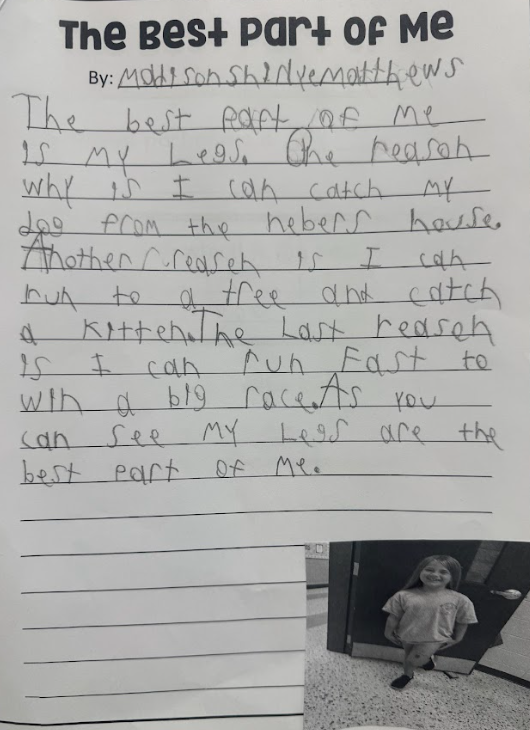 The Best Part of Me
By: MadisonShirlyeMatthews
The best part of Me
is My Legs. One reason
why is I can catch My
dog from the nebers house.
Another reasen is I can
run to a tree and catch
a kitten. The Last reasen
is I can run Fast to
win a big race. As you
can see My Legs are the
best part of Me.